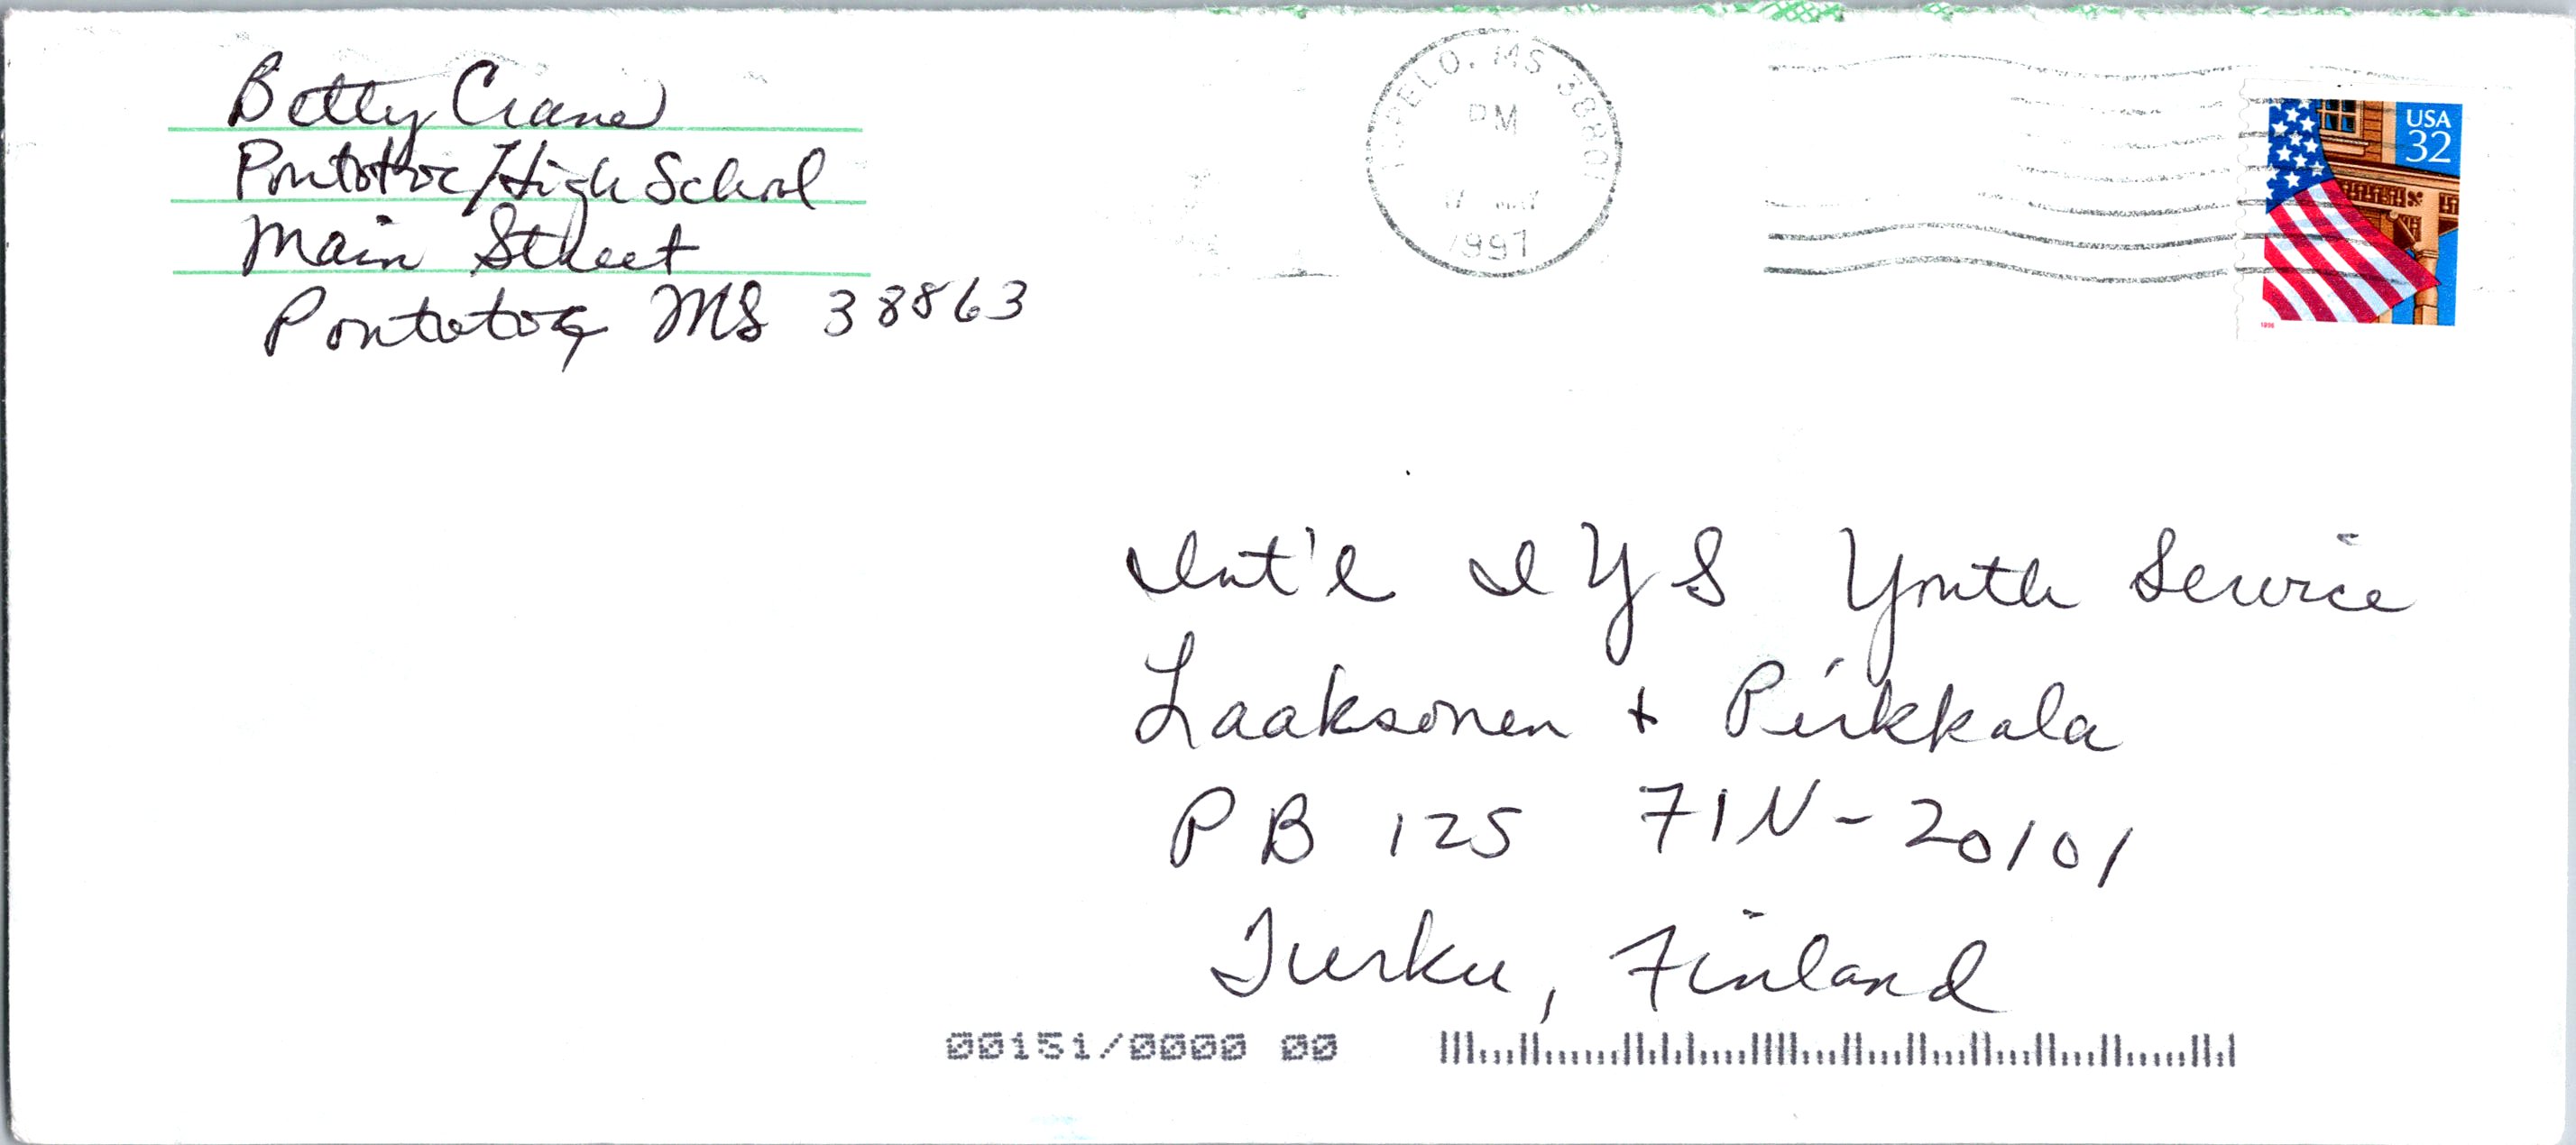 Betty Crane
Pontotoc High School
Main Street
Pontotoc, MS 38863
TUPELO, MS 38801
PM
1997
USA
32
1996
Int'l IYS Youth Service
Laaksonen + Pirkkala
PB 125 FIN-20101
Turku, Finland
00151/0000 00